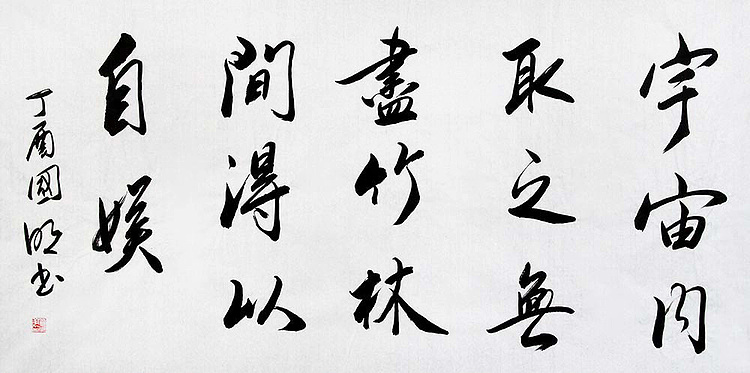 宇宙內
取之無
盡竹林
間得以
自娱
丁酉國明书